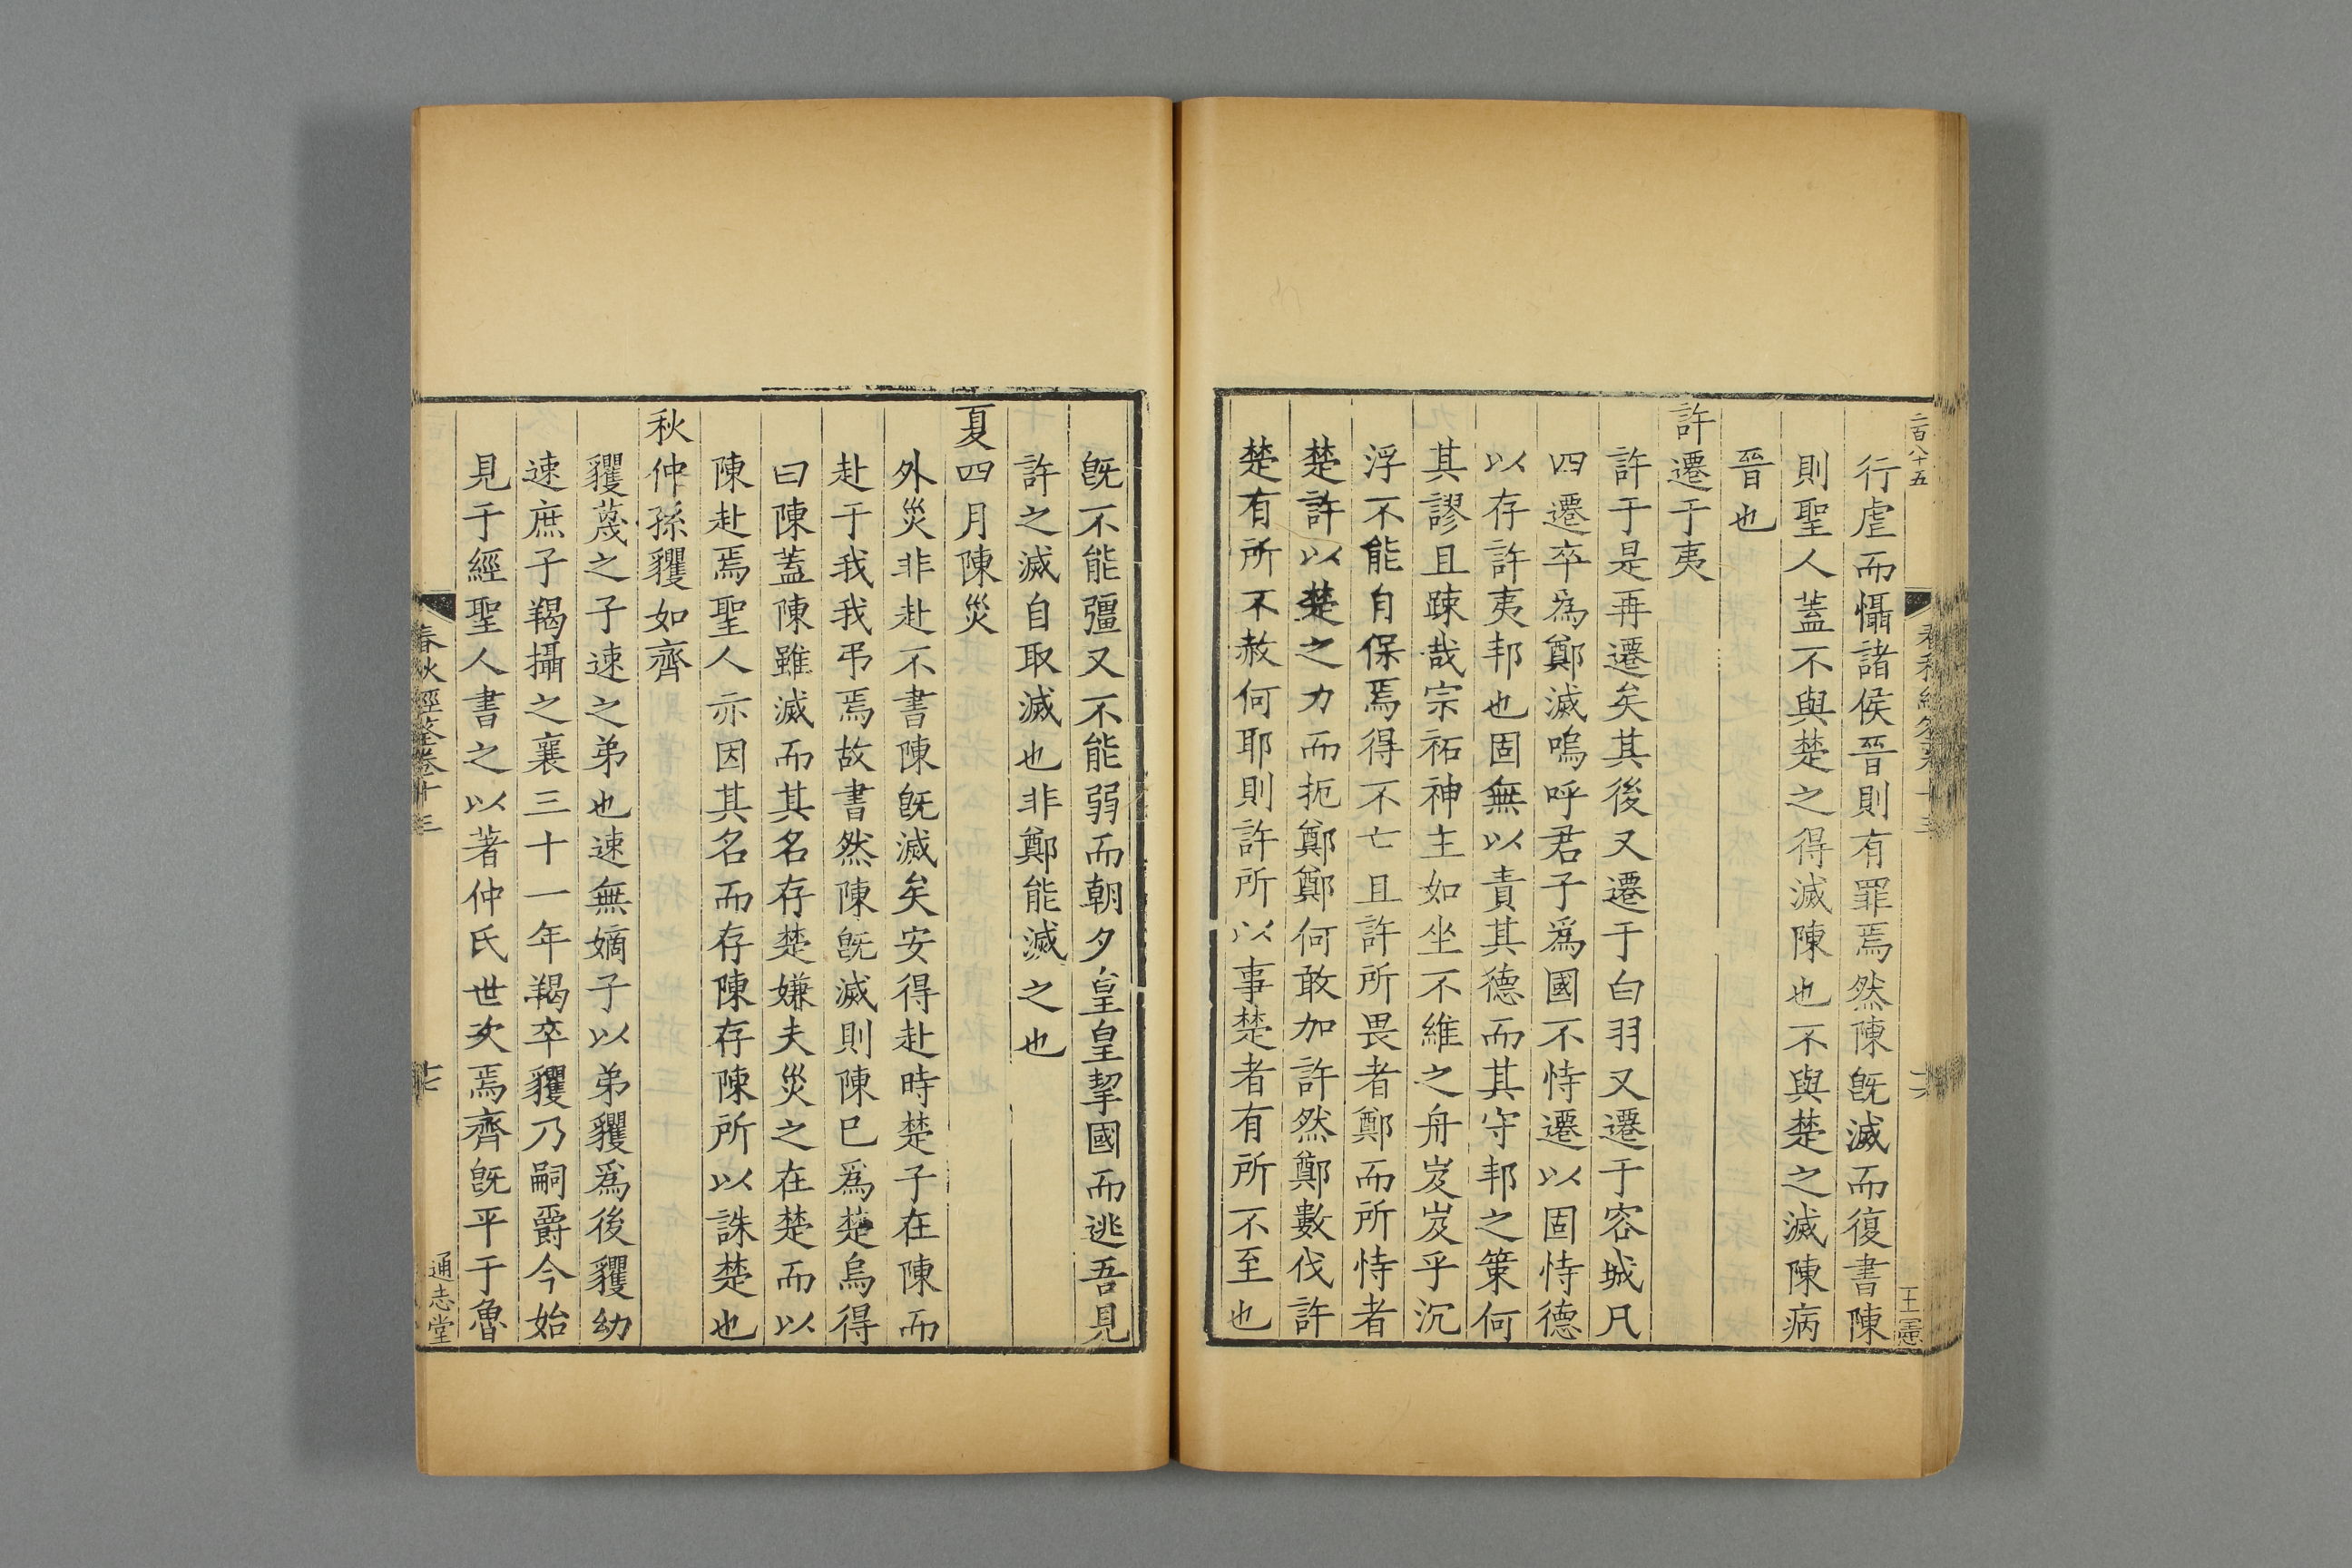 二百八十五
王憲
行虐而懾諸侯晉則有罪焉然陳旣滅而復書陳
則聖人蓋不與楚之得滅陳也不與楚之滅陳病
晉也
許遷于夷
許于是再遷矣其後又遷于白羽又遷于容城凡
四遷卒為鄭滅嗚呼君子爲國不恃遷以固恃德
以存許夷邦也固無以責其德而其守邦之策何
其謬且踈哉宗祏神主如坐不維之舟岌岌乎沉
浮不能自保焉得不亡且許所畏者鄭而所恃者
楚許以楚之力而扼鄭鄭何敢加許然鄭數伐許
楚有所不赦何耶則許所以事楚者有所不至也
旣不能彊又不能弱而朝夕皇皇挈國而逃吾見
許之滅自取滅也非鄭能滅之也
夏四月陳災
外災非赴不書陳旣滅矣安得赴時楚子在陳而
赴于我我弔焉故書然陳旣滅則陳巳爲楚烏得
曰陳蓋陳雖滅而其名存楚嫌夫災之在楚而以
陳赴焉聖人亦因其名而存陳存陳所以誅楚也
秋仲孫貜如齊
貜蔑之子速之弟也速無嫡子以弟貜爲後貜幼
速庶子羯攝之襄三十一年羯卒貜乃嗣爵今始
見于經聖人書之以著仲氏世次焉齊旣平于魯
春秋經筌卷十三
十七
通志堂